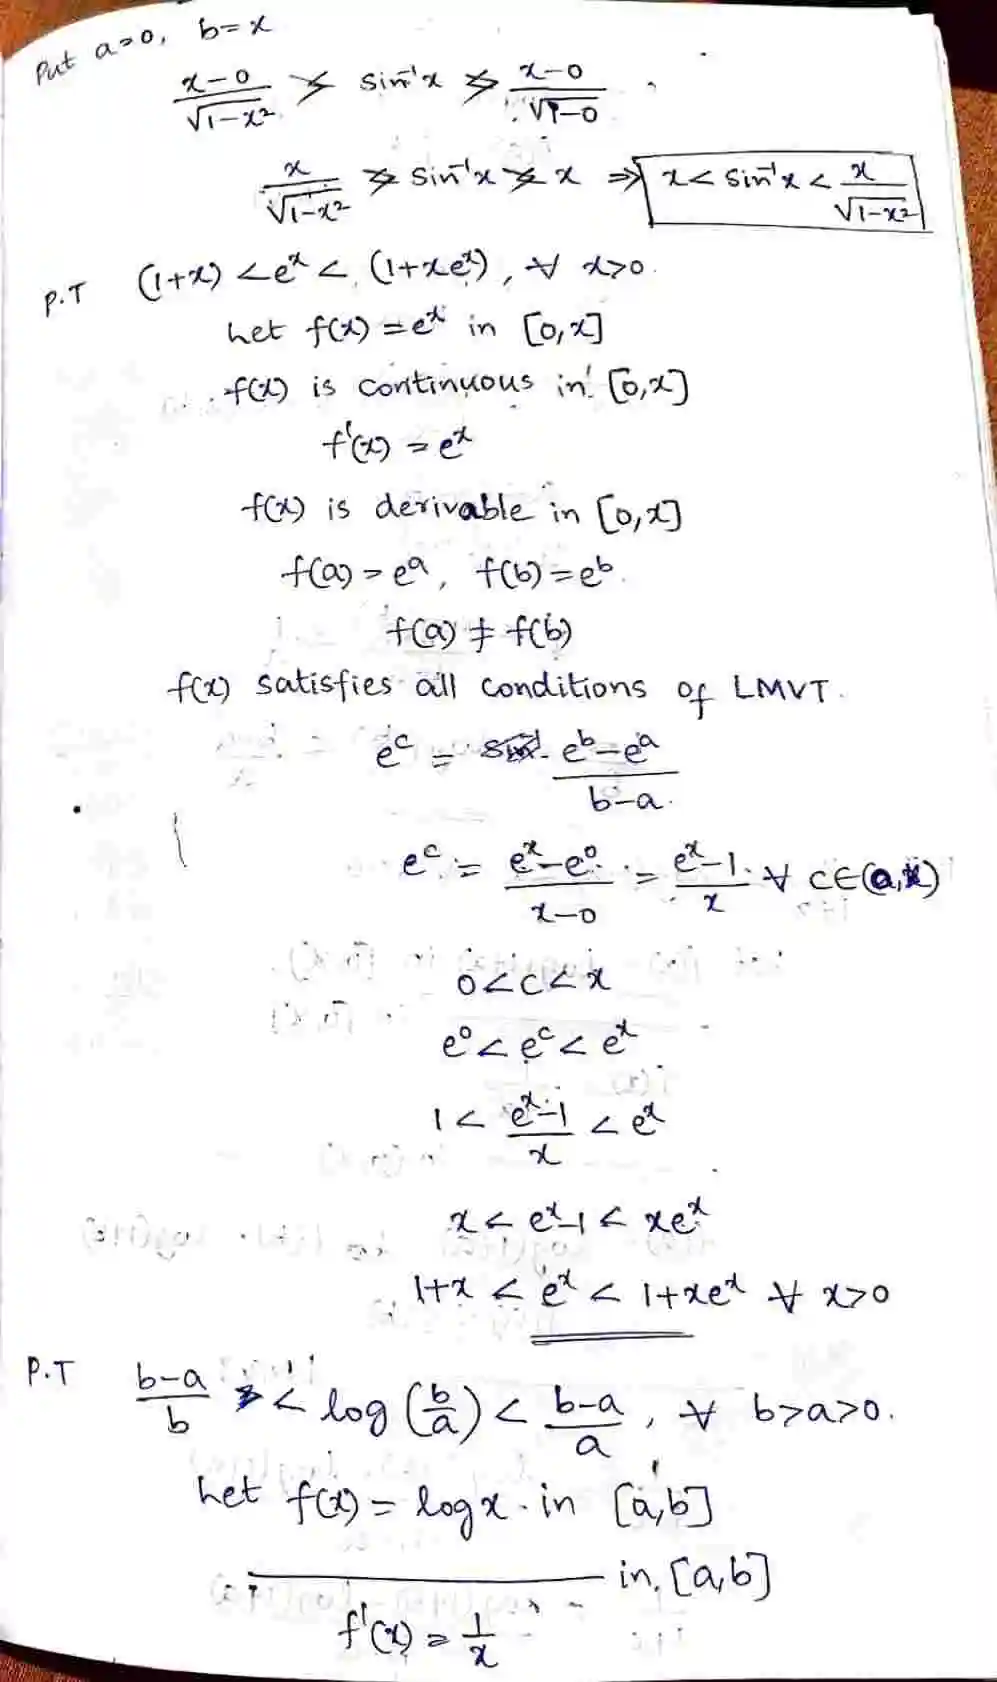 Put a=0, b=x
(x-0)/√(1-x²) > sin⁻¹x > (x-0)/√(1-0)
x/√(1-x²) > sin⁻¹x > x ⇒ x < sin⁻¹x < x/√(1-x²)
P.T (1+x) < eˣ < (1+xeˣ), ∀ x>0.
Let f(x) = eˣ in [0,x]
f(x) is continuous in [0,x]
f'(x) = eˣ
f(x) is derivable in [0,x]
f(a) = eᵃ, f(b) = eᵇ.
f(a) ≠ f(b)
f(x) satisfies all conditions of LMVT.
eᶜ = (eᵇ-eᵃ)/(b-a).
eᶜ = (eˣ-e⁰)/(x-0) = (eˣ-1)/x ∀ c∈(a,x)
0<c<x
e⁰<eᶜ<eˣ
1 < (eˣ-1)/x < eˣ
x < eˣ-1 < xeˣ
1+x < eˣ < 1+xeˣ ∀ x>0
P.T (b-a)/b < log(b/a) < (b-a)/a, ∀ b>a>0.
Let f(x) = log x. in [a,b]
in [a,b]
f'(x) = 1/x